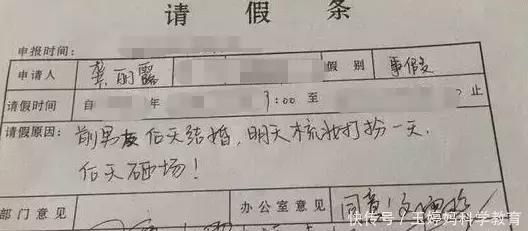 请假条
申报时间:
申请人 龚丽露 假别 事假
请假时间 自 年 9:00 至 止
请假原因: 前男友后天结婚,明天梳妆打扮一天,
后天砸场!
部门意见 办公室意见 同意!
快传号/玉婷妈科学教育